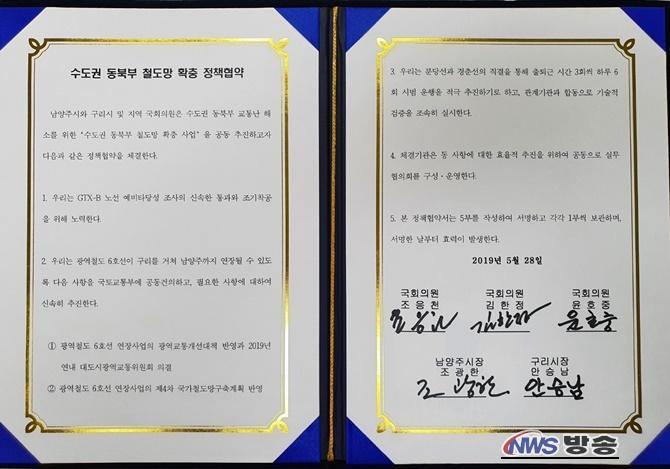 수도권 동북부 철도망 확충 정책협약
남양주시와 구리시 및 지역 국회의원은 수도권 동북부 교통난 해
소를 위한 "수도권 동북부 철도망 확충 사업" 을 공동 추진하고자
다음과 같은 정책협약을 체결한다.
1. 우리는 GTX-B 노선 예비타당성 조사의 신속한 통과와 조기착공
을 위해 노력한다.
2. 우리는 광역철도 6호선이 구리를 거쳐 남양주까지 연장될 수 있도
록 다음 사항을 국토교통부에 공동건의하고, 필요한 사항에 대하여
신속히 추진한다.
① 광역철도 6호선 연장사업의 광역교통개선대책 반영과 2019년
연내 대도시광역교통위원회 의결
② 광역철도 6호선 연장사업의 제4차 국가철도망구축계획 반영
3. 우리는 분당선과 경춘선의 직결을 통해 출퇴근 시간 3회씩 하루 6
회 시범 운행을 적극 추진하기로 하고, 관계기관과 합동으로 기술적
검증을 조속히 실시한다.
4. 체결기관은 동 사항에 대한 효율적 추진을 위하여 공동으로 실무
협의회를 구성·운영한다.
5. 본 정책협약서는 5부를 작성하여 서명하고 각각 1부씩 보관하며,
서명한 날부터 효력이 발생한다.
2019년 5월 28일
국회의원 국회의원 국회의원
조응천 김한정 윤호중
조응천 김한정 윤호중
남양주시장 구리시장
조광한 안승남
조광한 안승남
NWS 방송